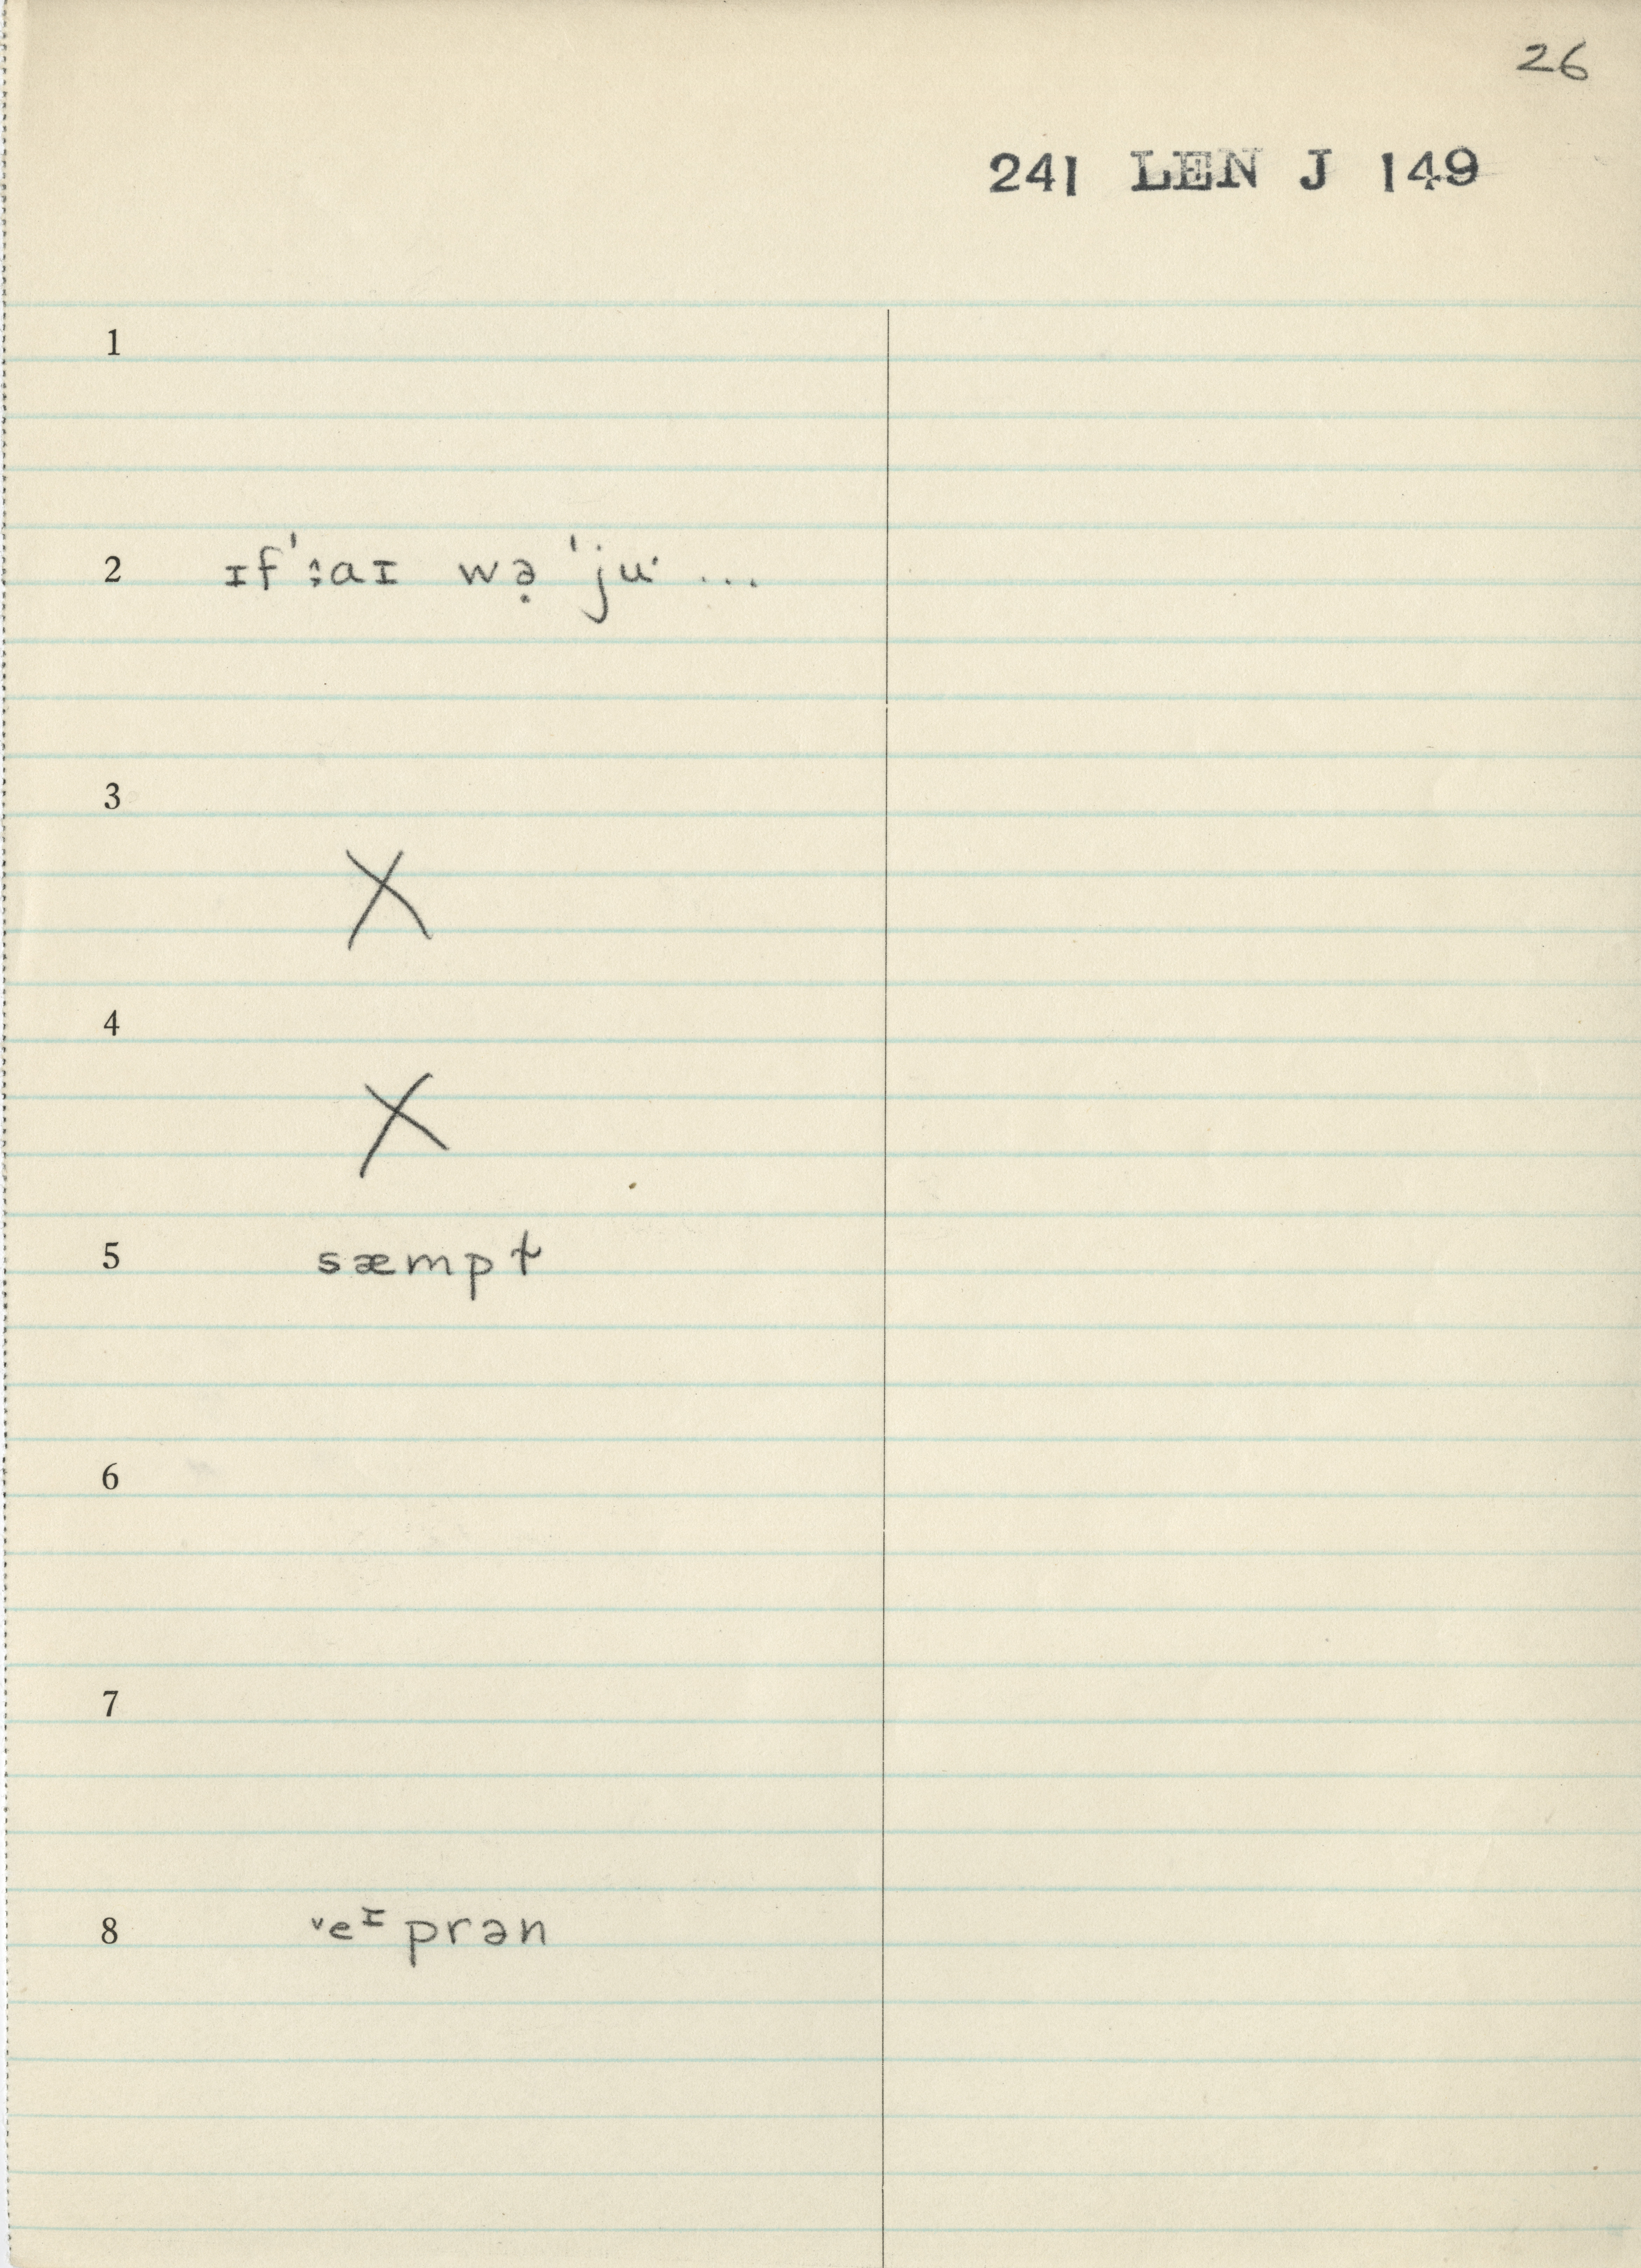 26
241 LEN J 149
1
2 ɪf'ːaɪ wə̣ 'juˑ ...
3
X
4
X
5 sæmpɫ
6
7
8 ˅eᶦprən